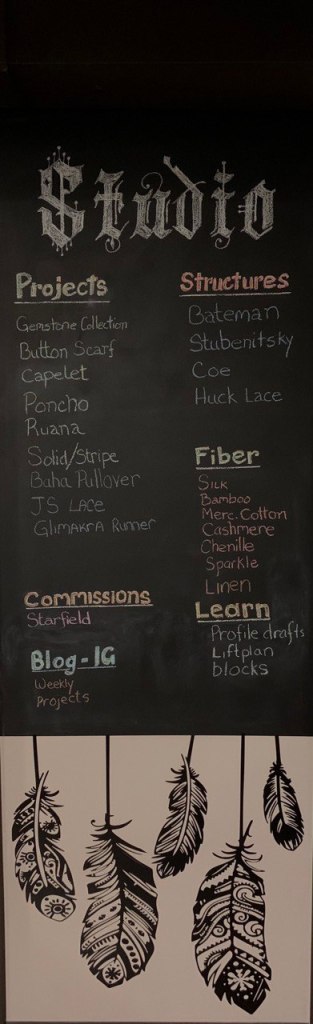 Studio
Projects
Gemstone Collection
Button Scarf
Capelet
Poncho
Ruana
Solid/Stripe
Baha Pullover
JS Lace
Glimakra Runner
Commissions
Starfield
Blog-IG
Weekly
Projects
Structures
Bateman
Stubenitsky
Coe
Huck Lace
Fiber
Silk
Bamboo
Merc. Cotton
Cashmere
Chenille
Sparkle
Linen
Learn
Profile drafts
Liftplan
blocks